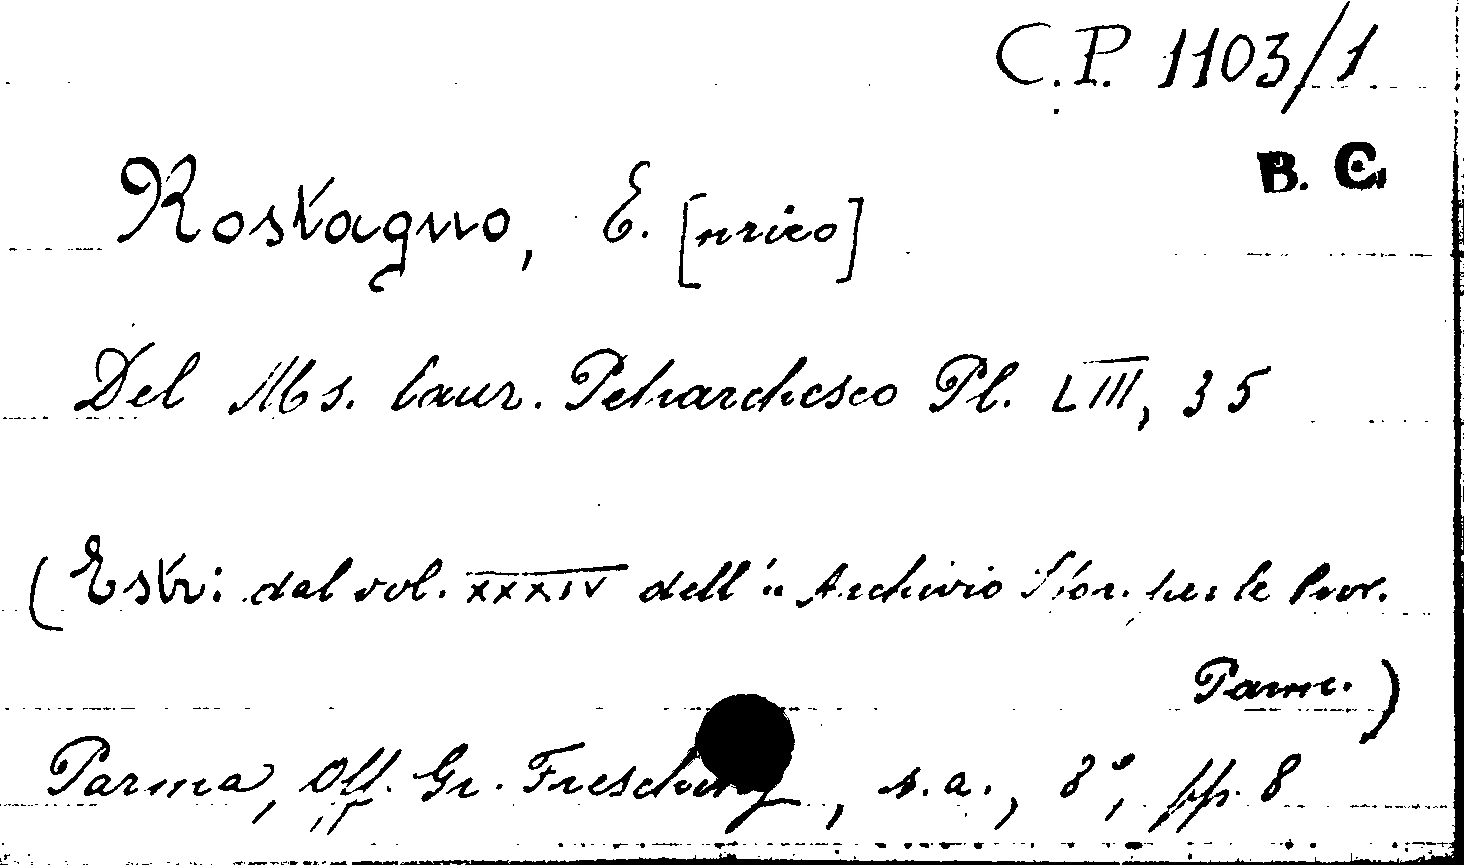 C.P. 1103/1
B. C.
Rostagno, E. [nrico]
Del Ms. laur. Petrarchesco Pl. LIII, 35
(Estr: dal vol. XXXIV dell'" Archivio Stor. per le Prov.
Parm.)
Parma, Off. Gr. Fresching, s.a., 8°, pp. 8